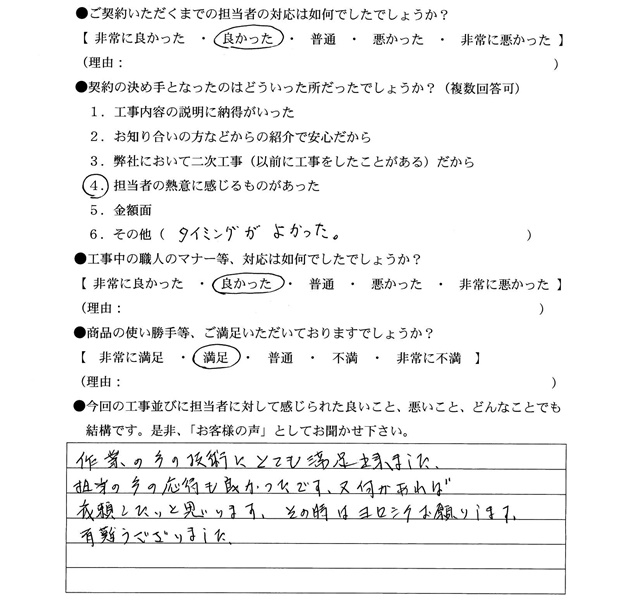 ●ご契約いただくまでの担当者の対応は如何でしたでしょうか？
【 非常に良かった ・ 良かった ・ 普通 ・ 悪かった ・ 非常に悪かった 】
（理由： ）
●契約の決め手となったのはどういった所だったでしょうか？（複数回答可）
１．工事内容の説明に納得がいった
２．お知り合いの方などからの紹介で安心だから
３．弊社において二次工事（以前に工事をしたことがある）だから
４．担当者の熱意に感じるものがあった
５．金額面
６．その他（ タイミングが よかった。 ）
●工事中の職人のマナー等、対応は如何でしたでしょうか？
【 非常に良かった ・ 良かった ・ 普通 ・ 悪かった ・ 非常に悪かった 】
（理由： ）
●商品の使い勝手等、ご満足いただいておりますでしょうか？
【 非常に満足 ・ 満足 ・ 普通 ・ 不満 ・ 非常に不満 】
（理由： ）
●今回の工事並びに担当者に対して感じられた良いこと、悪いこと、どんなことでも
結構です。是非、「お客様の声」としてお聞かせ下さい。
作業の方の技術にとても満足出来ました、
担当の方の応待も良かったです、又何かあれば
依頼したいと思います、その時はヨロシクお願いします、
有難うございました、